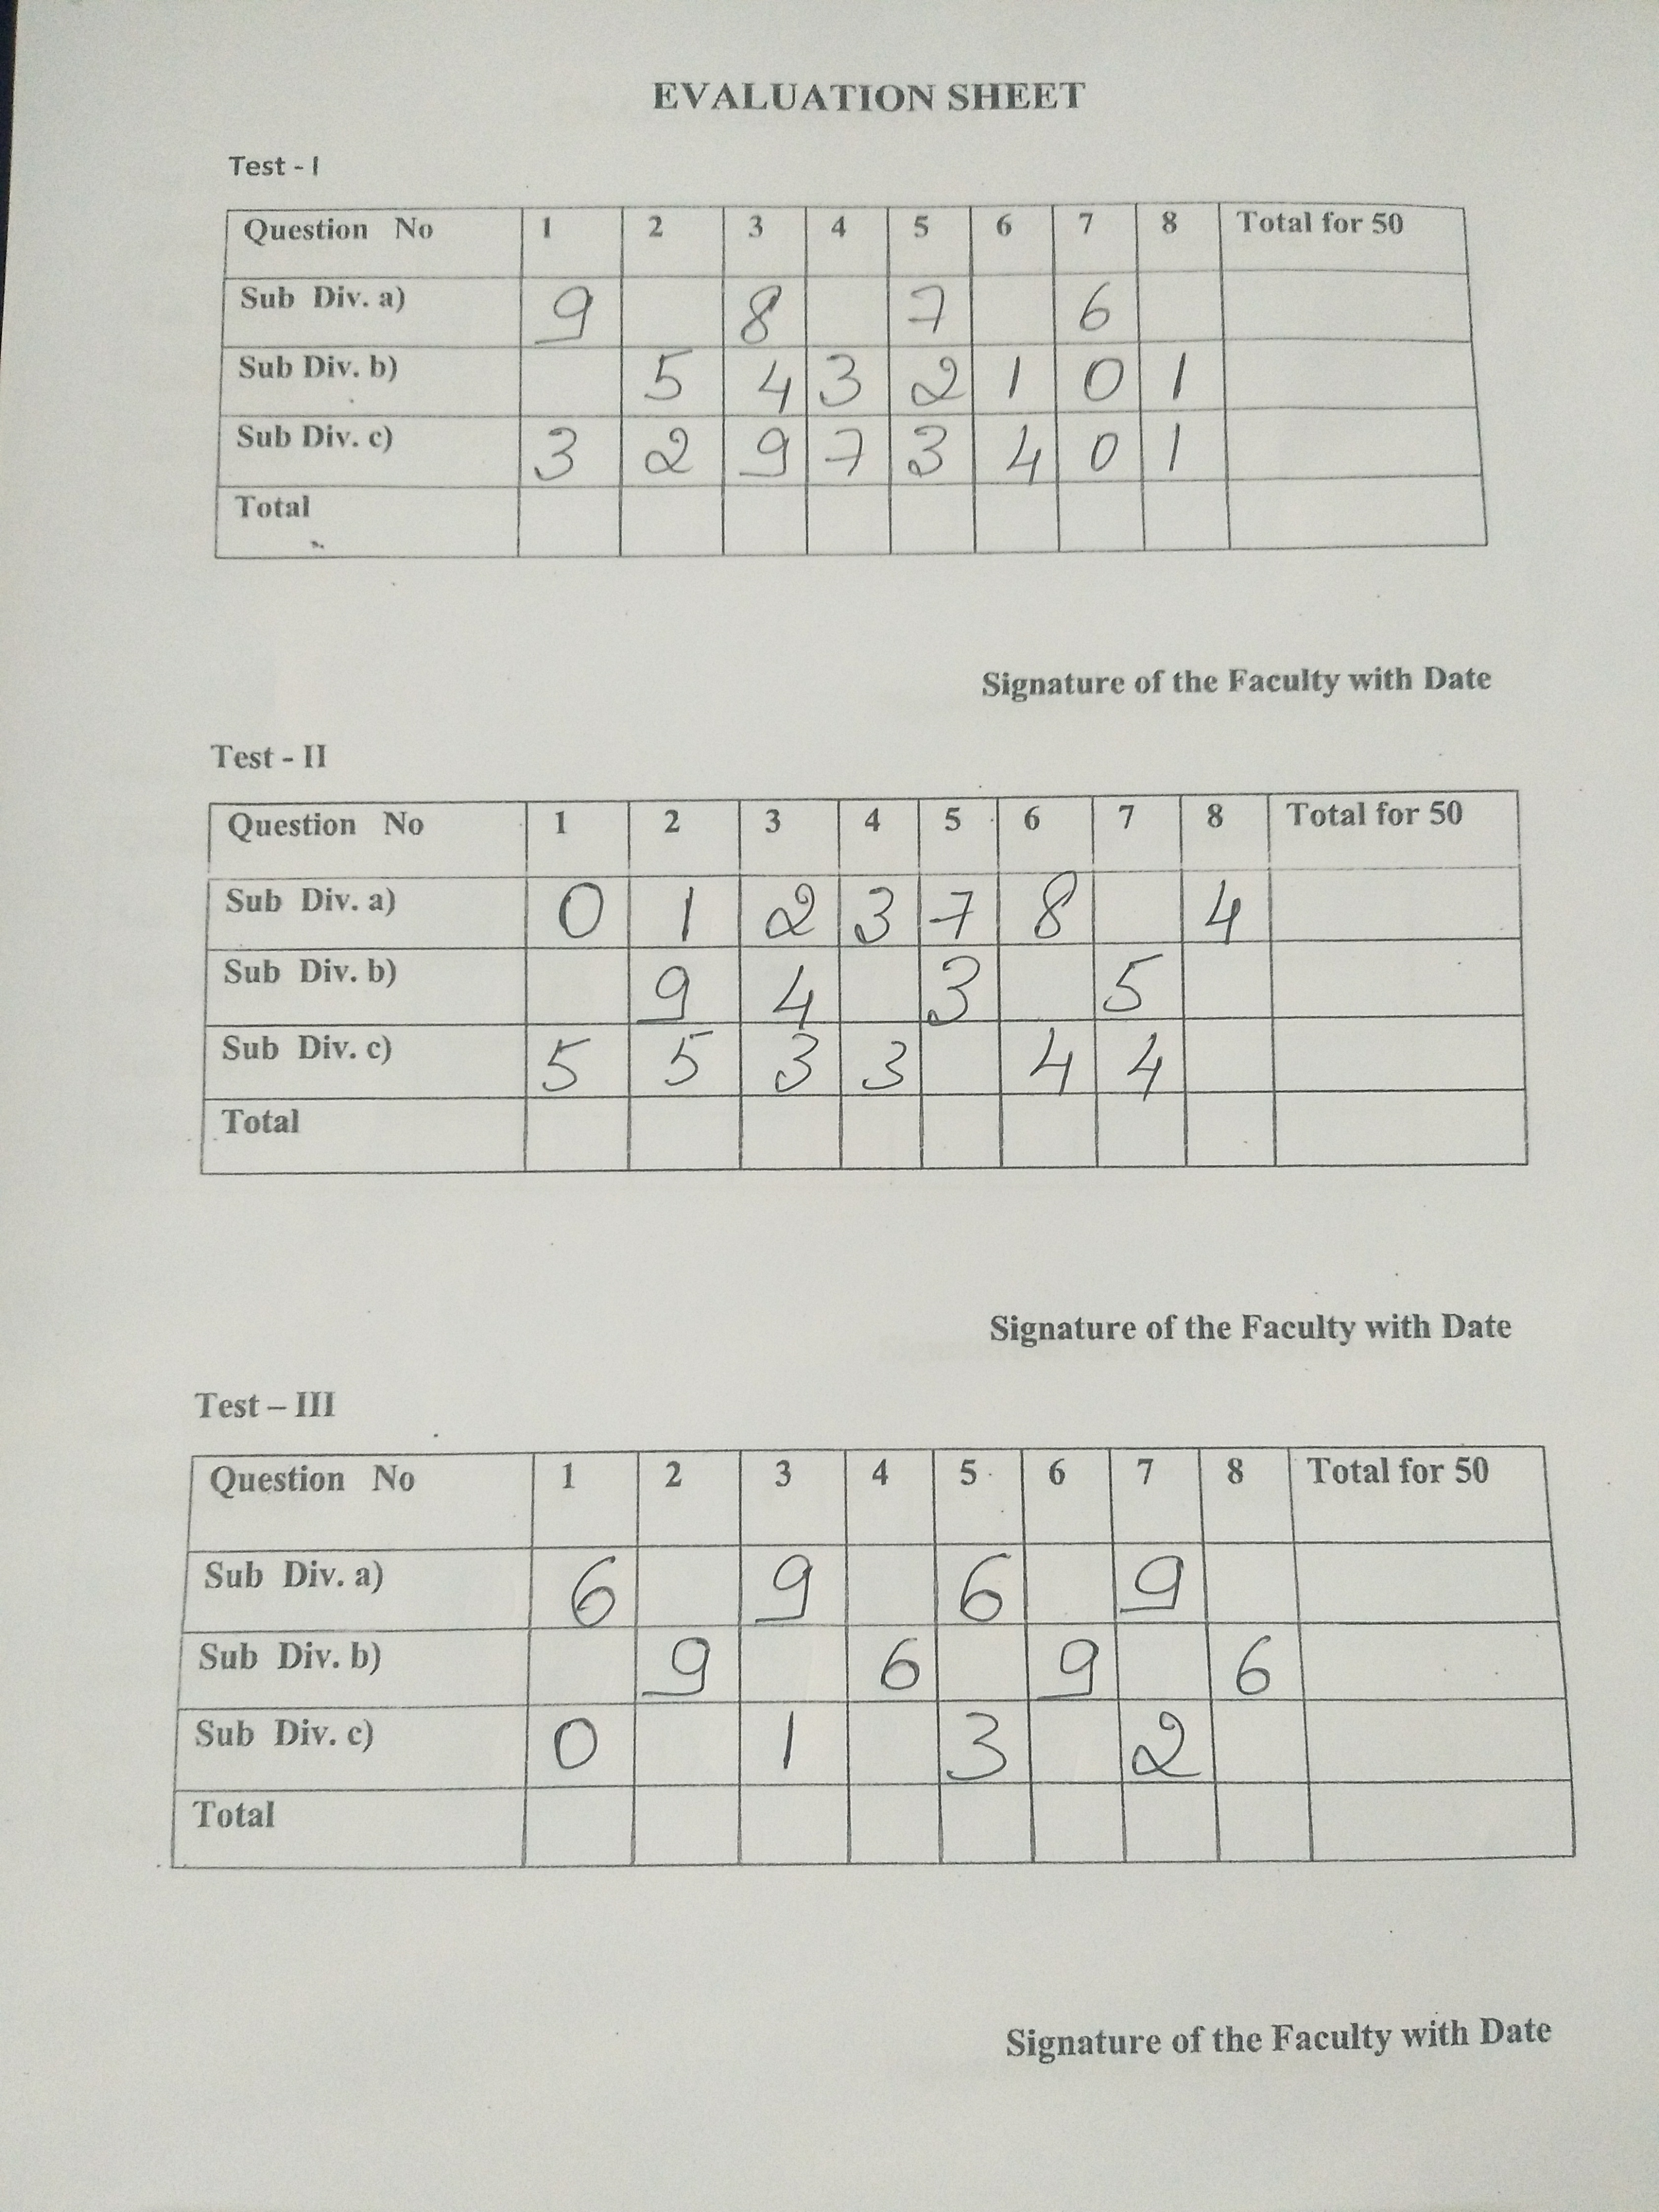 EVALUATION SHEET
Test - I
Question No 1 2 3 4 5 6 7 8 Total for 50
Sub Div. a) 9 8 7 6
Sub Div. b) 5 4 3 2 1 0 1
Sub Div. c) 3 2 9 7 3 4 0 1
Total
Signature of the Faculty with Date
Test - II
Question No 1 2 3 4 5 6 7 8 Total for 50
Sub Div. a) 0 1 2 3 7 8 4
Sub Div. b) 9 4 3 5
Sub Div. c) 5 5 3 3 4 4
Total
Signature of the Faculty with Date
Test – III
Question No 1 2 3 4 5 6 7 8 Total for 50
Sub Div. a) 6 9 6 9
Sub Div. b) 9 6 9 6
Sub Div. c) 0 1 3 2
Total
Signature of the Faculty with Date